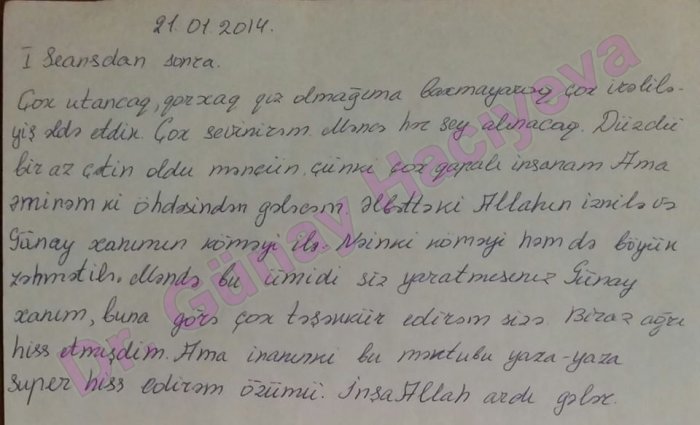 21.01.2014.
I Seansdan sonra.
Çox utancaq, qorxaq qız olmağıma baxmayaraq çox irəlilə-
yiş əldə etdik. Çox sevinirəm. Məncə hər şey alınacaq. Düzdü
bir az çətin oldu mənçün, çünki çox qapalı insanam. Ama
əminəm ki öhdəsindən gələcəm. Əlbəttəki Allahın iznilə və
Günay xanımın köməyi ilə. Nəinki köməyi həm də böyük
zəhmətilə. Məndə bu ümidi siz yaratmısınız Günay
xanım, buna görə çox təşəkkür edirəm sizə. Biraz ağrı
hiss etmişdim. Ama inanınki bu məktubu yaza-yaza
super hiss edirəm özümü. İnşaAllah ardı gələr.
Dr. Günay Hacıyeva